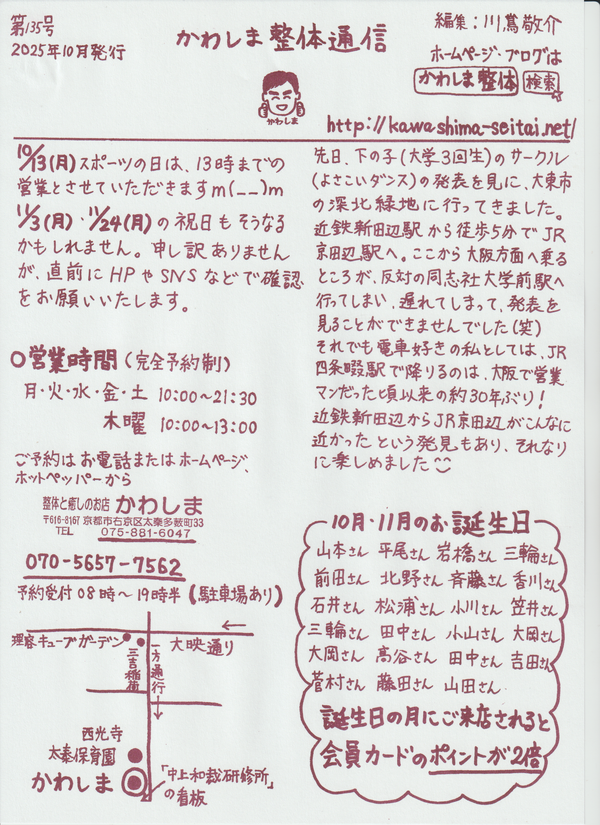 第135号
2025年10月発行
かわしま整体通信
編集：川嶌敬介
ホームページ・ブログは
かわしま整体 検索
かわしま
http://kawashima-seitai.net/
10/13(月)スポーツの日は、13時までの
営業とさせていただきますm(__)m
11/3(月)・11/24(月)の祝日もそうなる
かもしれません。申し訳ありません
が、直前にHPやSNSなどで確認
をお願いいたします。
〇営業時間(完全予約制)
月・火・水・金・土 10:00～21:30
木曜 10:00～13:00
ご予約はお電話またはホームページ、
ホットペッパーから
整体と癒しのお店 かわしま
〒616-8167 京都市右京区太秦多藪町33
TEL 075-881-6047
070-5657-7562
予約受付08時～19時半(駐車場あり)
理容キューブガーデン
大映通り
三吉稲荷
一方通行
西光寺
太秦保育園
かわしま
「中上和裁研修所」
の看板
先日、下の子(大学3回生)のサークル
(よさこいダンス)の発表を見に、大東市
の深北緑地に行ってきました。
近鉄新田辺駅から徒歩5分でJR
京田辺駅へ。ここから大阪方面へ乗る
ところが、反対の同志社大学前駅へ
行ってしまい、遅れてしまって、発表を
見ることができませんでした(笑)
それでも電車好きの私としては、JR
四条畷駅で降りるのは、大阪で営業
マンだった頃以来の約30年ぶり！
近鉄新田辺からJR京田辺がこんなに
近かったという発見もあり、それなり
に楽しめました
10月・11月のお誕生日
山本さん 平尾さん 岩橋さん 三輪さん
前田さん 北野さん 斉藤さん 香川さん
石井さん 松浦さん 小川さん 笠井さん
三輪さん 田中さん 小山さん 大岡さん
大岡さん 高谷さん 田中さん 吉田さん
菅村さん 藤田さん 山田さん
誕生日の月にご来店されると
会員カードのポイントが2倍